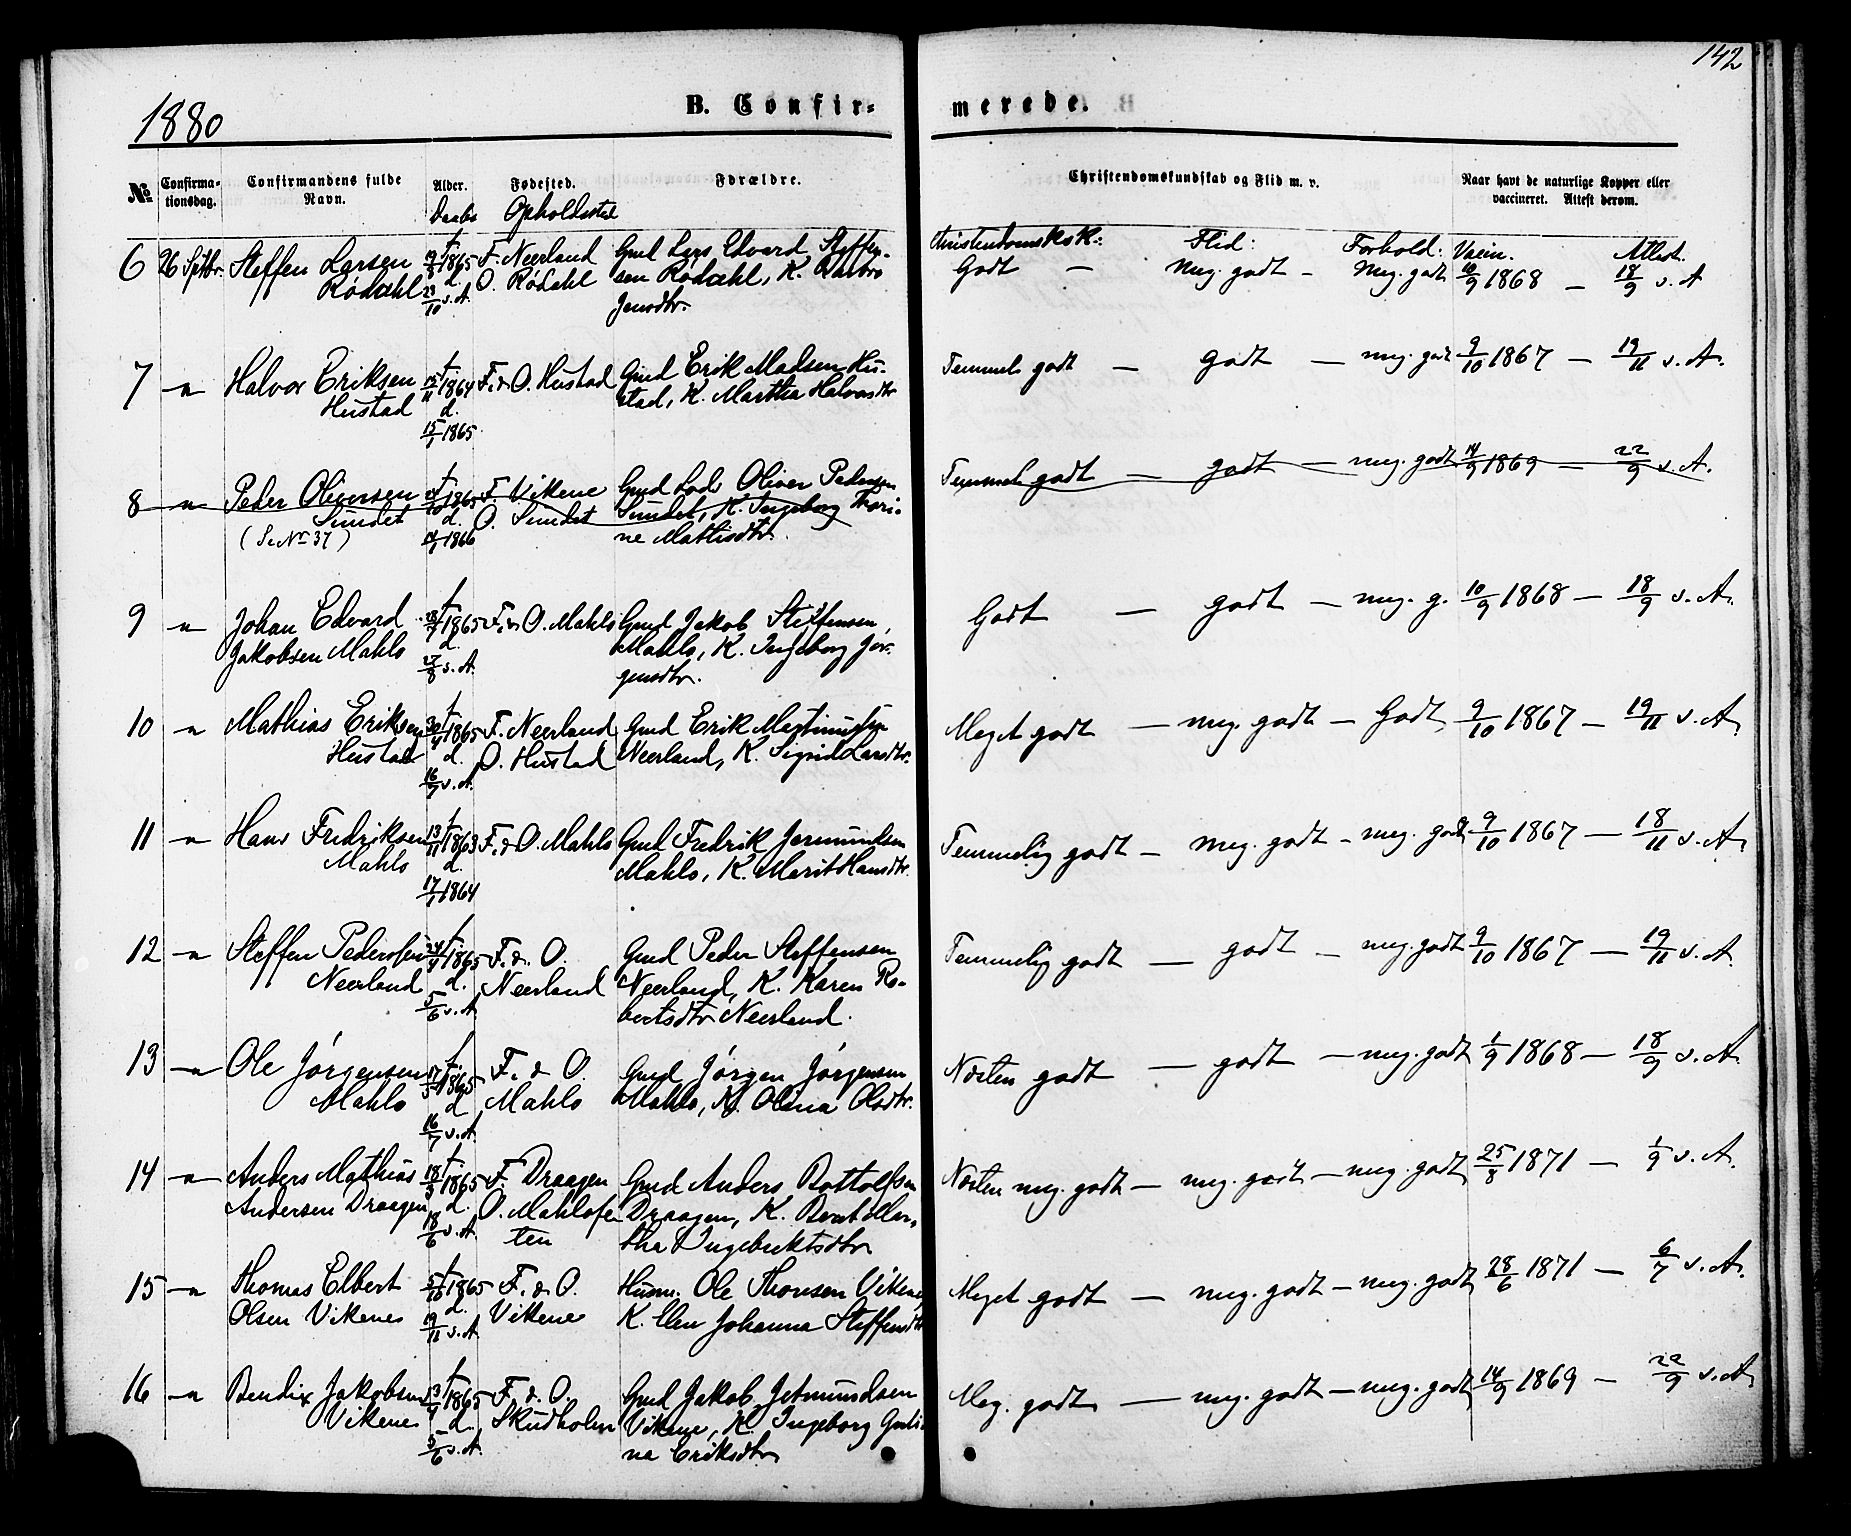 142
1880
B. Confir-
merede.
No
Confirma-
tionsdag.
Confirmandens fulde
Navn.
Alder.
Daabs
Fødested.
Opholdssted
Forældre.
Christendomskundskab og Flid m. v.
Naar havt de naturlige Kopper eller
vaccineret. Attest derom.
Christendomsk:
Flid:
Forhold:
Vaccin.
Attest.
6 26 Sptbr. Steffen Larsen f. 19/8 1865 F. Neerland Gmd Lars Edvard Steffen-
Rødahl d. 23/10 s. A. O. Rødahl sen Rødahl, K.
Jensdtr.
Godt — meg. godt — meg. godt 10/9 1868 — 18/9 s. A.
7 — Halvor Eriksen f. 15/11 1864 F. & O. Hustad Gmd Erik Madsen Hu-
Hustad d. stad, K. Martha Halvorsdtr
15/1 1865
Temmel. godt — godt — meg. godt 9/10 1867 — 19/11 s. A.
8 — Peder Oliversen f. 1865 F. Vikene Gmd Lods Oliver Pedersen
Sundet d. O. Sundet Sundet, K. Ingeborg Thori-
(Se No 37) 1866 ne Mathisdtr.
Temmel. godt — godt — meg. godt 14/9 1869 — 22/9 s. A.
9 — Johan Edvard f. 1865 F. & O. Mahlo Gmd Jakob Steffensen
Jakobsen Mahlo d. Mahlo, K. Ingeborg Jør-
27/8 s. A. gensdtr.
Godt — godt — meg. g. 10/9 1868 — 18/9 s. A.
10 — Mathias Eriksen f. 30/4 1865 F. Neerland Gmd Erik
Hustad d. O. Hustad Neerland, K. Sigrid Larsdtr.
16/7 s. A.
Meget godt — meg. godt — Godt 9/10 1867 — 19/11 s. A.
11 — Hans Fredriksen f. 13/11 1863 F. & O. Mahlo Gmd Fredrik Jermundsen
Mahlo d. Mahlo, K. Marit Hansdtr.
17/1 1864
Temmelig godt — meg. godt — meg. godt 9/10 1867 — 18/11 s. A.
12 — Steffen Pedersen f. 24/4 1865 F. & O. Gmd Peder Steffensen
Neerland d. Neerland Neerland, K. Karen Ro-
5/6 s. A. bertsdtr Neerland.
Temmelig godt — godt — meg. godt 9/10 1867 — 19/11 s. A.
13 — Ole Jørgensen f. 17/5 1865 F. & O. Gmd Jørgen Jørgensen
Mahlo d. Mahlo Mahlo, K. Olina Olsdtr.
16/7 s. A.
Næsten godt — godt — meg. godt 1/9 1868 — 18/9 s. A.
14 — Anders Mathias f. 18/3 1865 F. Draagen Gmd Anders Bottolfsen
Andersen Draagen d. O. Mahlofe- Draagen, K. Berit Mar-
18/6 s. A. ten tha Ingebriktsdtr
Næsten meg. godt — meg. godt — meg. godt 25/8 1871 — 1/9 s. A.
15 — Thomas Elbert f. 5/10 1865 F. & O. Husm. Ole Thomsen Vikene,
Olsen Vikene d. Vikene K. Elen Johanna Steffensdtr
19/11 s. A.
Meget godt — meg. godt — meg. godt 28/6 1871 — 6/7 s. A.
16 — Bendix Jakobsen f. 1865 F. & O. Gmd Jakob Jetmundsen
Vikene d. Skudholm Vikene, K. Ingeborg Guri-
5/6 s. A. na Eriksdtr
Meg. godt — meg. godt — meg. godt 14/9 1869 — 22/9 s. A.